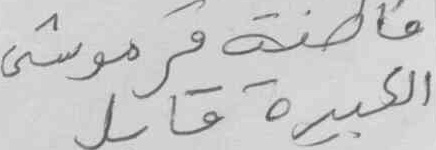 فاطنة قرموشى
الكبيرة قابل